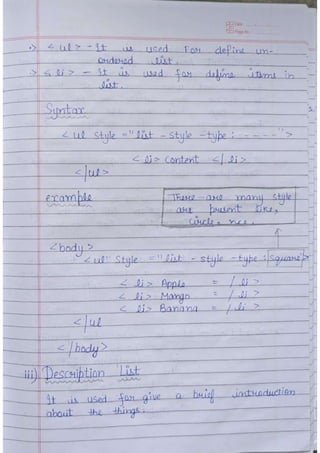 Date
Page No.
:> < ul > - It is used For define un-
ordered list.
:> < li > - It is used for define items in
list.
Syntax
< ul style = "list - style - type : - - - - ">
< li > content </ li >
</ul>
example
There are many style
are present like,
circle,
<body>
<ul" Style = "list - style - type : Square >
< li > Apple = / li >
< li > Mango = / li >
< li > Banana = / li >
</ul
</body>
iii) Description List
It is used for give a brief introduction
about the things.